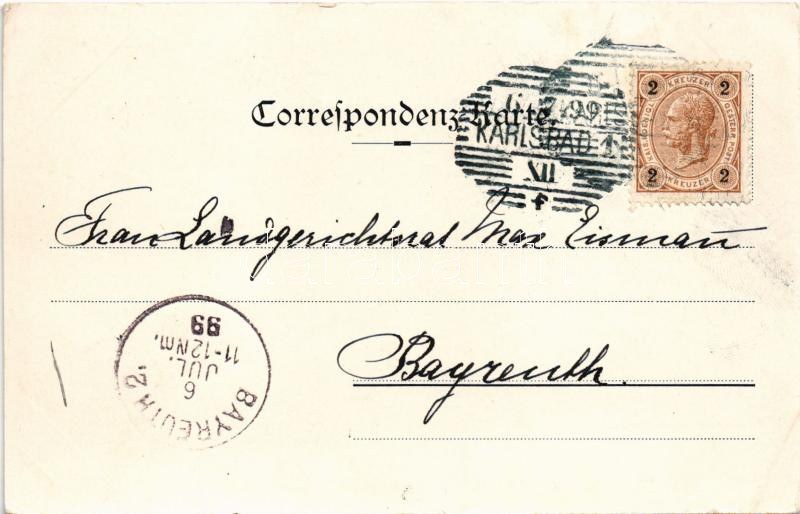 Correspondenz-Karte.
6.7.99
KARLSBAD 1
XII
f
2 KREUZER 2
2 KREUZER 2
Frau Landgerichtsrat Max Eismañ
Bayreuth.
BAYREUTH 2.
6
JUL.
11-12 Nm.
99